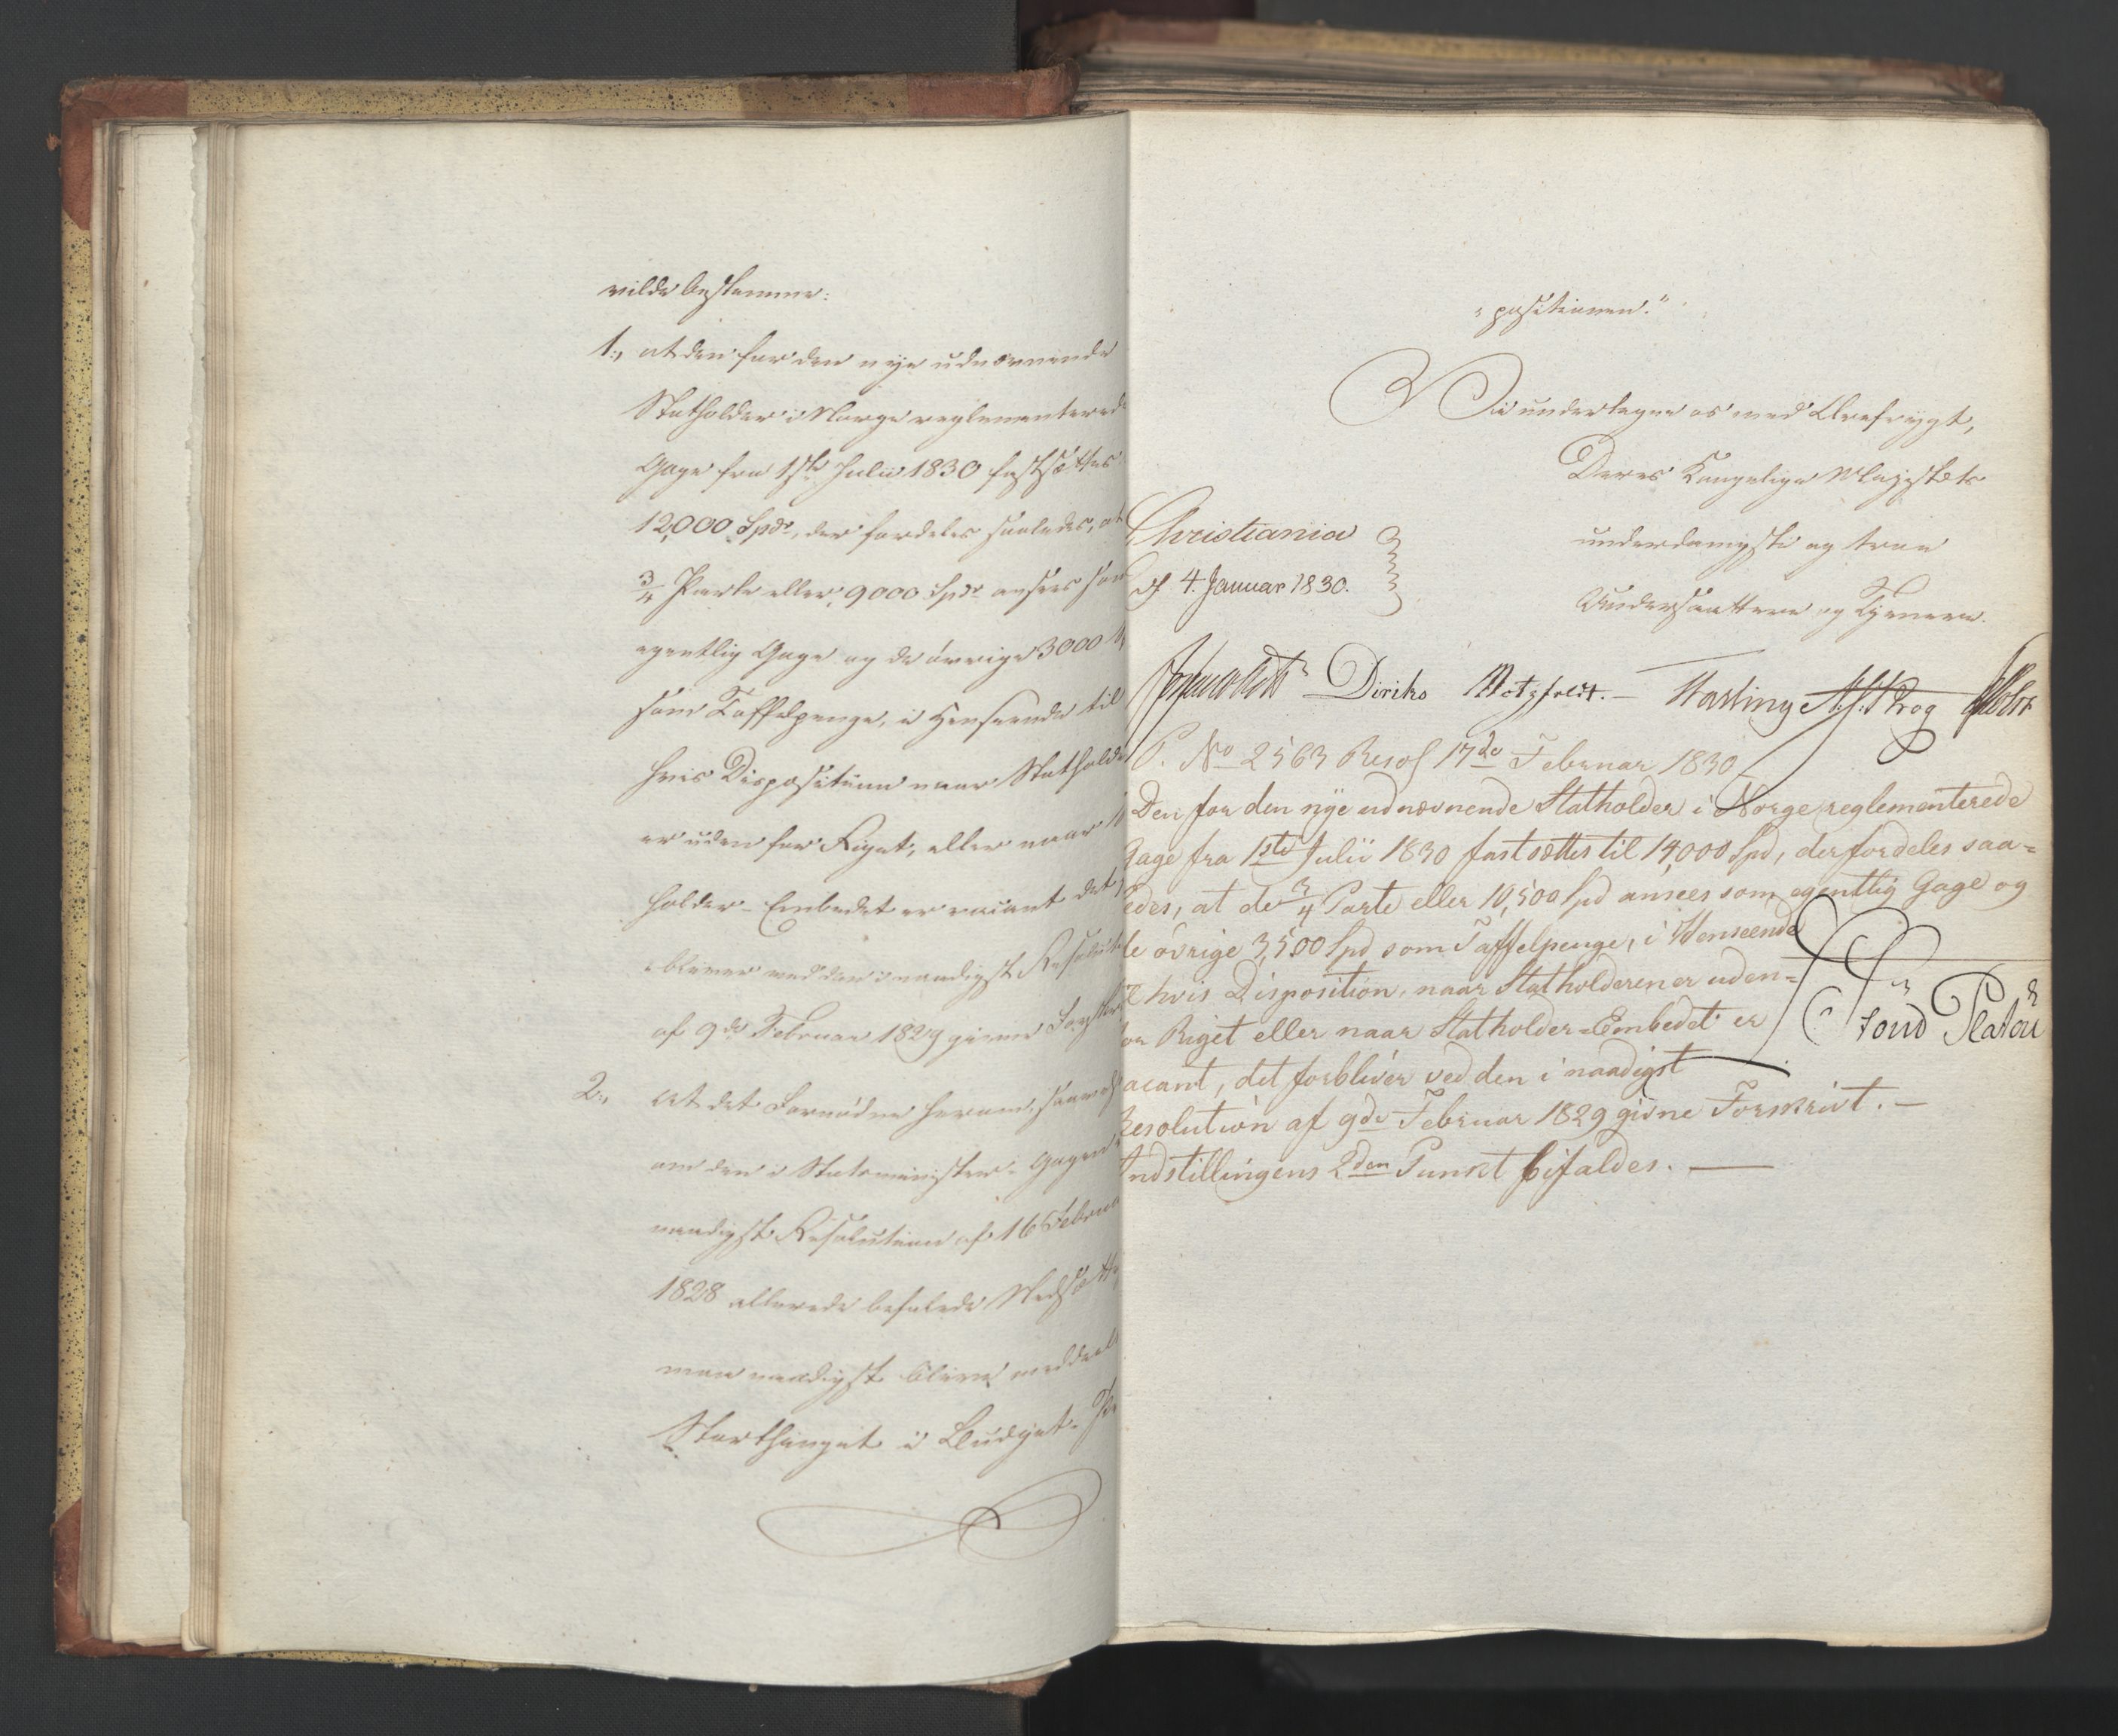 vilde bestemme:
1., at den for den nye udnævnende
Statholder i Norge reglementerede
Gage fra 1ste Julii 1830 fastsættes
12,000 Spdr, der fordeles saaledes, at
3/4 Parte eller 9000 Spdr ansees som
egentlig Gage og de övrige 3000
som Taffelpenge, i Henseende til
hvis Disposition naar Statholder
er uden for Riget, eller naar
holder-Embedet er vacant det
bliver ved den i naadigst Resolut
af 9de Februar 1829 givne Forskri
2., At det Fornödne herom, saavel
om den i Statsminister-Gagen
naadigst Resolution af 16 Februar
1828 allerede befalede Nedsætte
maa naadigst blive meddeelt
Storthinget i Budget-Pro
"positionen."
Vi underlegne os med Ærefrygt,
Deres Kongelige Majestæts
underdanigste og troe
Undersaattere og Tjenere.
Christiania
d 4. Januar 1830.
Diriks Motzfeldt. Fasting Krog Holst
P. No 2563 Resol 17de Februar 1830
Den for den nye udnævnende Statholder i Norge reglementerede
Gage fra 1ste Julii 1830 fastsættes til 14,000 Spd, der fordeles saa=
ledes, at de 3/4 Parte eller 10,500 Spd ansees som egentlig Gage og
de övrige 3,500 Spd som Taffelpenge, i Henseende
til hvis Disposition, naar Statholderen er uden=
for Riget eller naar Statholder=Embedet er
vacant, det forbliver ved den i naadigst
Resolution af 9de Februar 1829 givne Forskrivt. —
Indstillingens 2den Punkt bifaldes. —
Platou